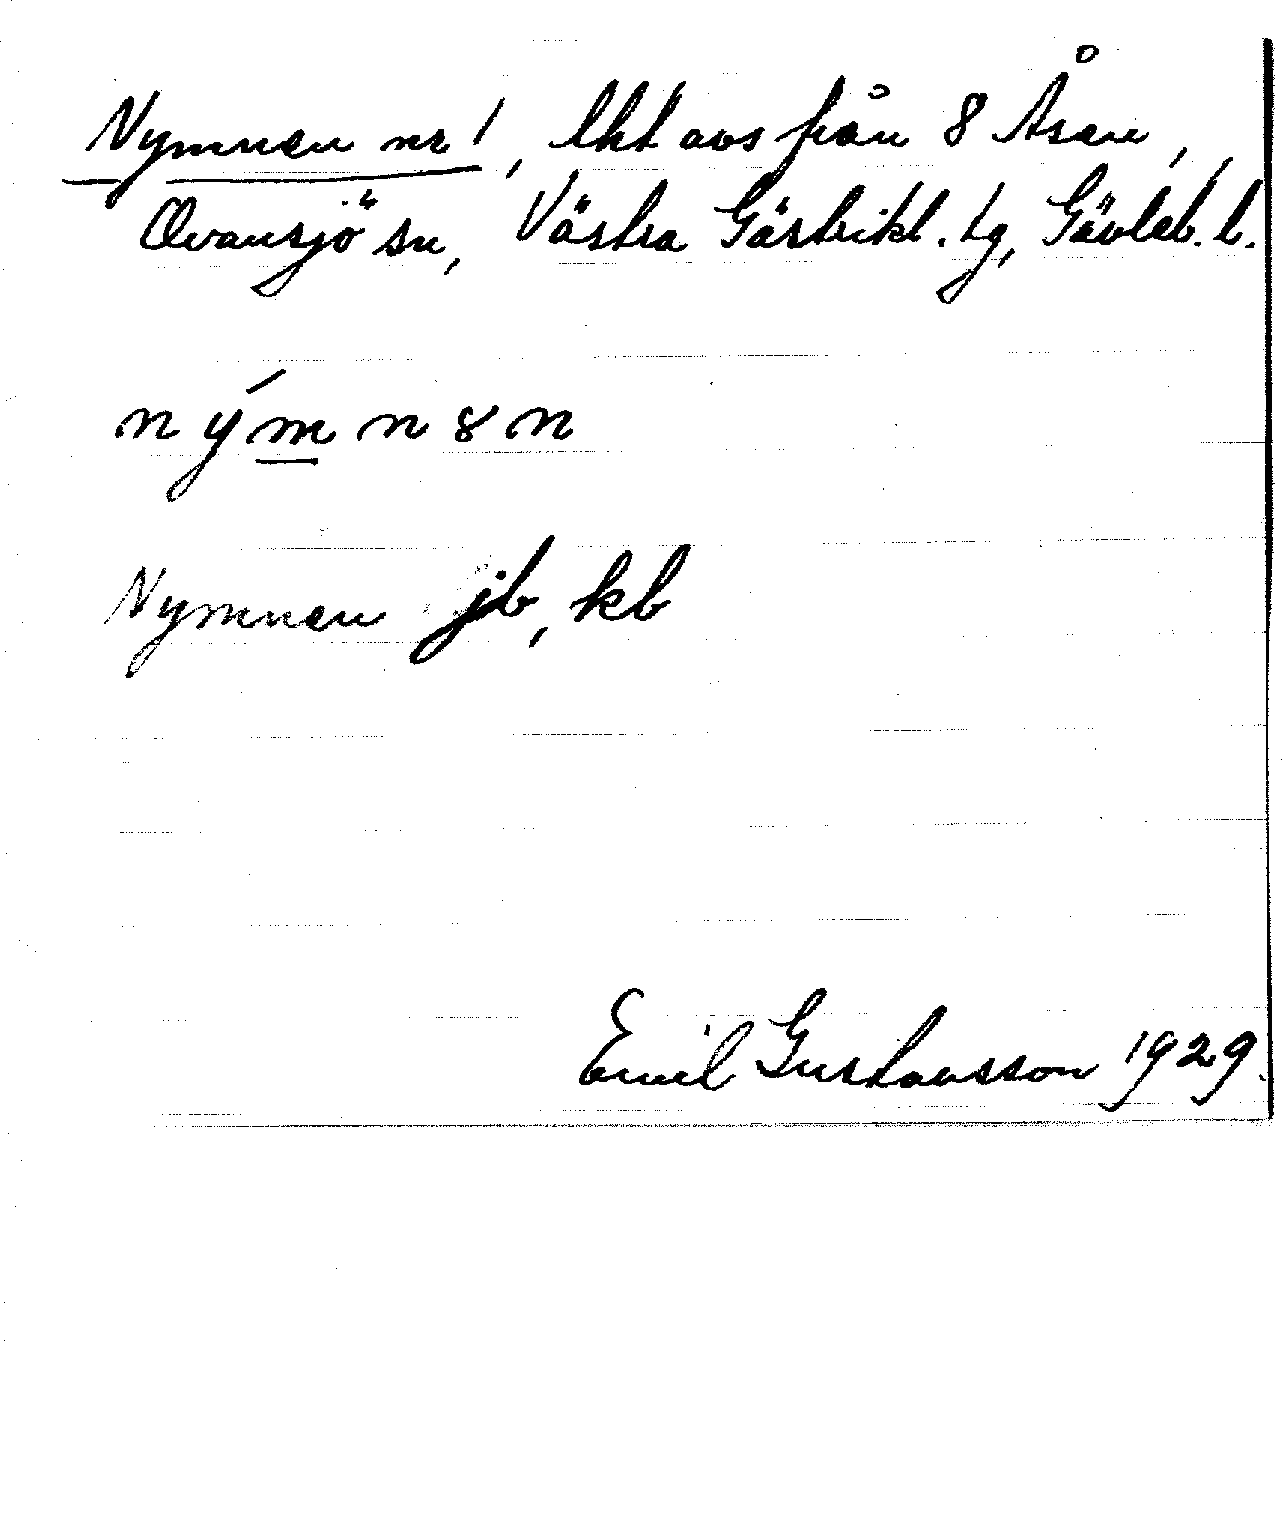 Nymnen nr 1, lht avs från 8 Åsen,
Ovansjö sn, Västra Gästrikl. tg, Gävleb. l.
nýmn8n
Nymnen jb, kb
Emil Gustavsson 1929.